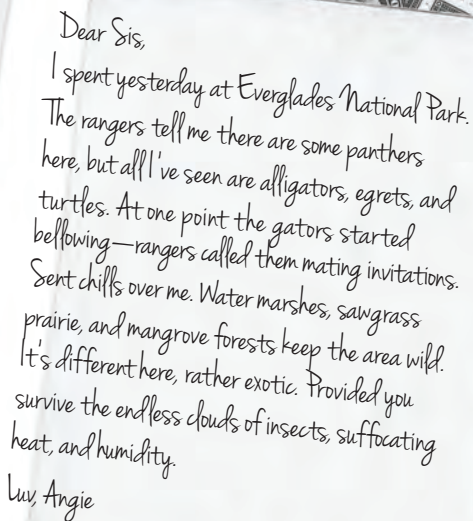 Dear Sis,
I spent yesterday at Everglades National Park.
The rangers tell me there are some panthers
here, but all I've seen are alligators, egrets, and
turtles. At one point the gators started
bellowing—rangers called them mating invitations.
Sent chills over me. Water marshes, sawgrass
prairie, and mangrove forests keep the area wild.
It's different here, rather exotic. Provided you
survive the endless clouds of insects, suffocating
heat, and humidity.
Luv, Angie